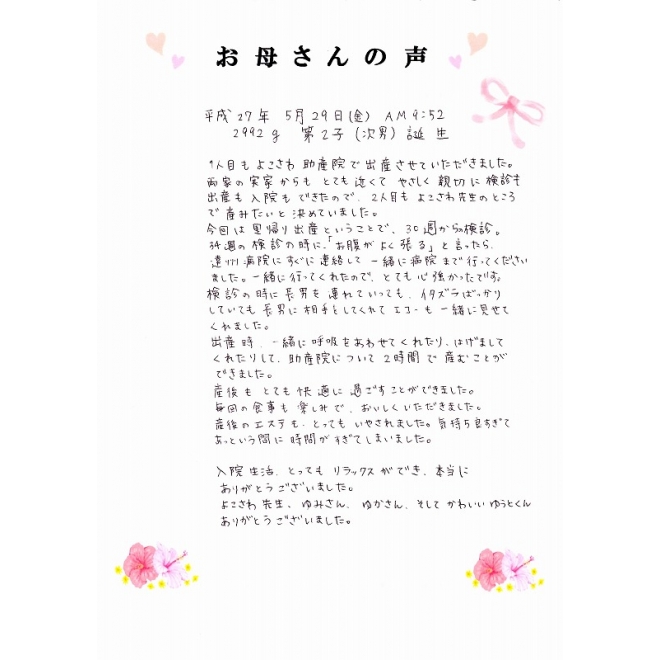 お母さんの声
平成27年 5月29日(金) AM9:52
2992g 第2子(次男)誕生
1人目もよこさわ助産院で出産させていただきました。
両家の実家からもとても近くてやさしく親切に検診も
出産も入院もできたので、2人目もよこさわ先生のところ
で産みたいと決めていました。
今回は里帰り出産ということで、30週からの検診。
34週の検診の時に、「お腹がよく張る」と言ったら、
遠州病院にすぐに連絡して一緒に病院まで行ってください
ました。一緒に行ってくれたので、とても心強かったです。
検診の時に長男を連れていっても、イタズラばっかり
していても長男に相手をしてくれてエコーも一緒に見せて
くれました。
出産時、一緒に呼吸をあわせてくれたり、はげまして
くれたりして、助産院について2時間で産むことが
できました。
産後もとても快適に過ごすことができました。
毎回の食事も楽しみで、おいしくいただきました。
産後のエステも、とってもいやされました。気持ち良すぎて
あっという間に時間がすぎてしまいました。
入院生活、とってもリラックスができ、本当に
ありがとうございました。
よこさわ先生、ゆみさん、ゆかさん、そしてかわいいゆうとくん
ありがとうございました。